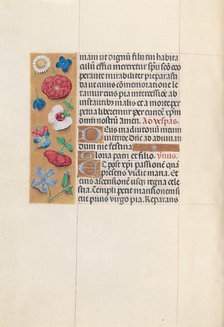 mam ut dignũ filii tui habita
culũ effici mereretur spũ sco coo
perante mirabiliter preparasti
da ut cuius cõmemoratione le
tamur eius pia intercessione ab
instantibus malis et a morte per
petua liberemur Per eundem dñm
nostrũ Amen. Ad vesp̃as.
Deus in adiutoriũ meum
intende Dñe ad adiuvan
dum me festina
Gloria patri et filio. ymnus.
Et post xp̃i passionẽ qua
presens vidit maria. Et
eius ascensionẽ usq̃ regna ce
lestia. Templi petit mansionẽ
pec pius virgo pia. Reparans